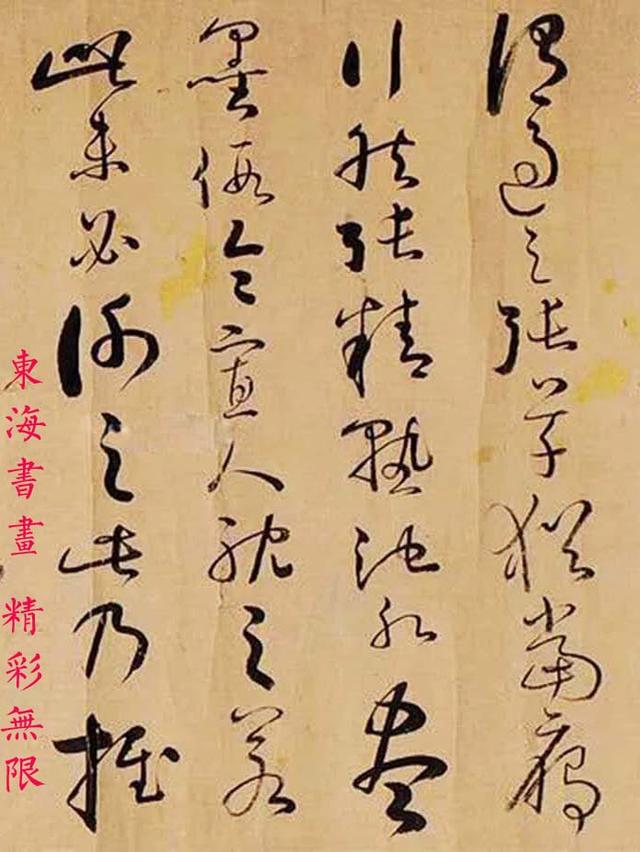 謂過之張草猶當雁
行然張精熟池水盡
墨假令寡人耽之若
此未必謝之此乃推
東海書畫 精彩無限